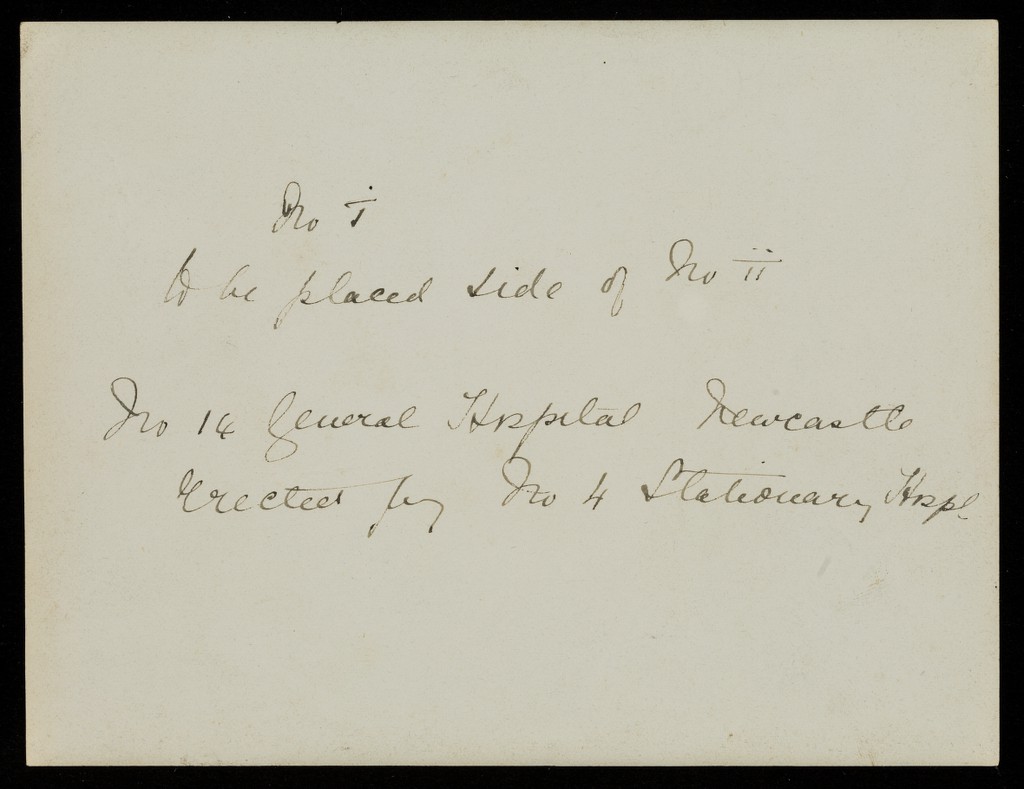 No i
to be placed side of No ii
No 14 General Hospital Newcastle
Erected by No 4 Stationary Hospl